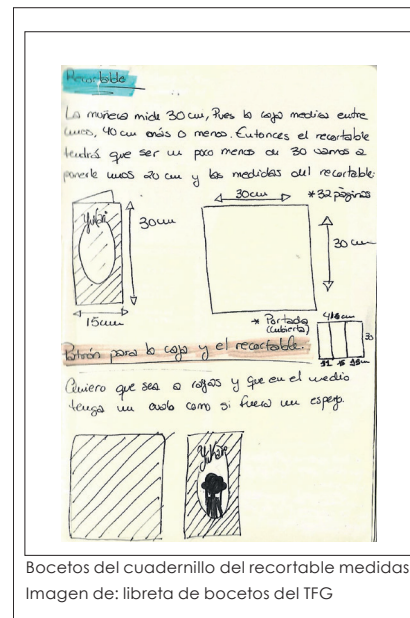 Recortable
La muñeca mide 30 cm, Pues la caja medira entre
unos, 40 cm más o menos. Entonces el recortable
tendrá que ser un poco menos de 30 vamos a
ponerle unos 20 cm y las medidas del recortable:
30cm * 32 páginas
Yukari 30cm
30 cm
15cm
* Portada
(cubierta)
30
Patrón para la caja y el recortable.
Quiero que sea a rayas y que en el medio
tenga un ovalo como si fuera un espejo.
Yukari
Bocetos del cuadernillo del recortable medidas
Imagen de: libreta de bocetos del TFG